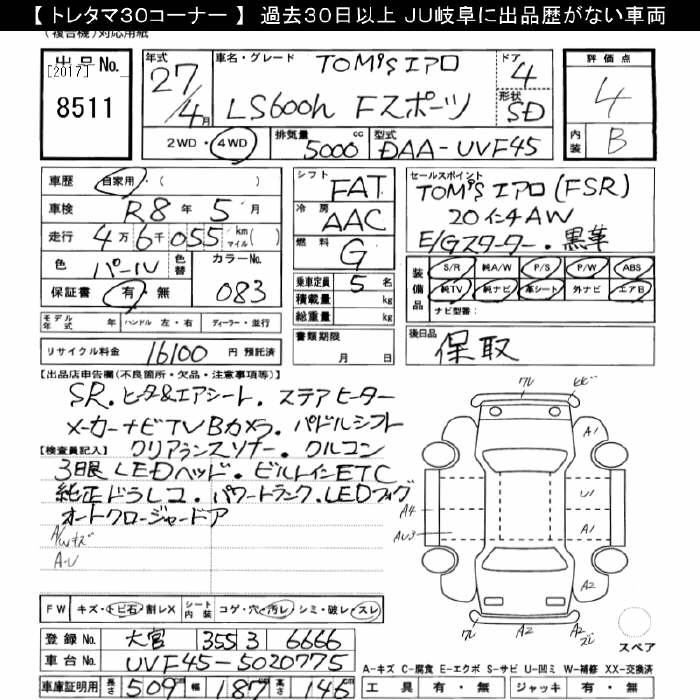 【トレタマ30コーナー】 過去30日以上 JU岐阜に出品歴がない車両
(複合機)対応用紙
出品No.
[2017]
8511
年式 27/4月
車名・グレード TOM'Sエアロ
LS600h Fスポーツ
ドア 4
形状 SD
2WD・4WD 排気量 5000 cc 型式 DAA-UVF45
評価点 4
内装 B
車歴 自家用・( )
車検 R8年5月
走行 4万6千055 km マイル( )
色 パール 色替 カラーNo. 083
保証書 有・無
モデル年式 年 ハンドル 左・右 ディーラー・並行
リサイクル料金 16100 円 預託済
シフト FAT
冷房 AAC
燃料 G
乗車定員 5 名
積載量 kg
総重量 kg
書類期限 月 日
セールスポイント
TOM'Sエアロ(FSR)
20インチAW
E/Gスターター・黒革
装備品 S/R 純A/W P/S P/W ABS
純TV 純ナビ 革シート 外ナビ エアB
ナビ型番:
後日品 保取
【出品店申告欄(不良箇所・欠品・注意事項等)】
SR. ヒータ&エアシート. ステアヒーター
メーカーナビTVBカメラ. パドルシフト
【検査員記入】 クリアランスソナー. クルコン
3眼LEDヘッド. ビルトインETC
純正ドラレコ. パワートランク. LEDフォグ
オートクロージャードア
A/Wキズ
A-U
ワレ
ヒビ
A1
U1
A4
A1
AU3
A2
ワレ
A2
A2
ズレ
スペア
FW キズ・トビ石・割レX シート内装 コゲ・穴・汚レ・シミ・破レ・スレ
登録No. 大宮 355 3 6666
車台No. UVF45-5020775
車庫証明用 長さ 509 幅 187 高さ 146 cm
A-キズ C-腐食 E-エクボ S-サビ U-凹ミ W-補修 XX-交換済
工具 有・無 ジャッキ 有・無